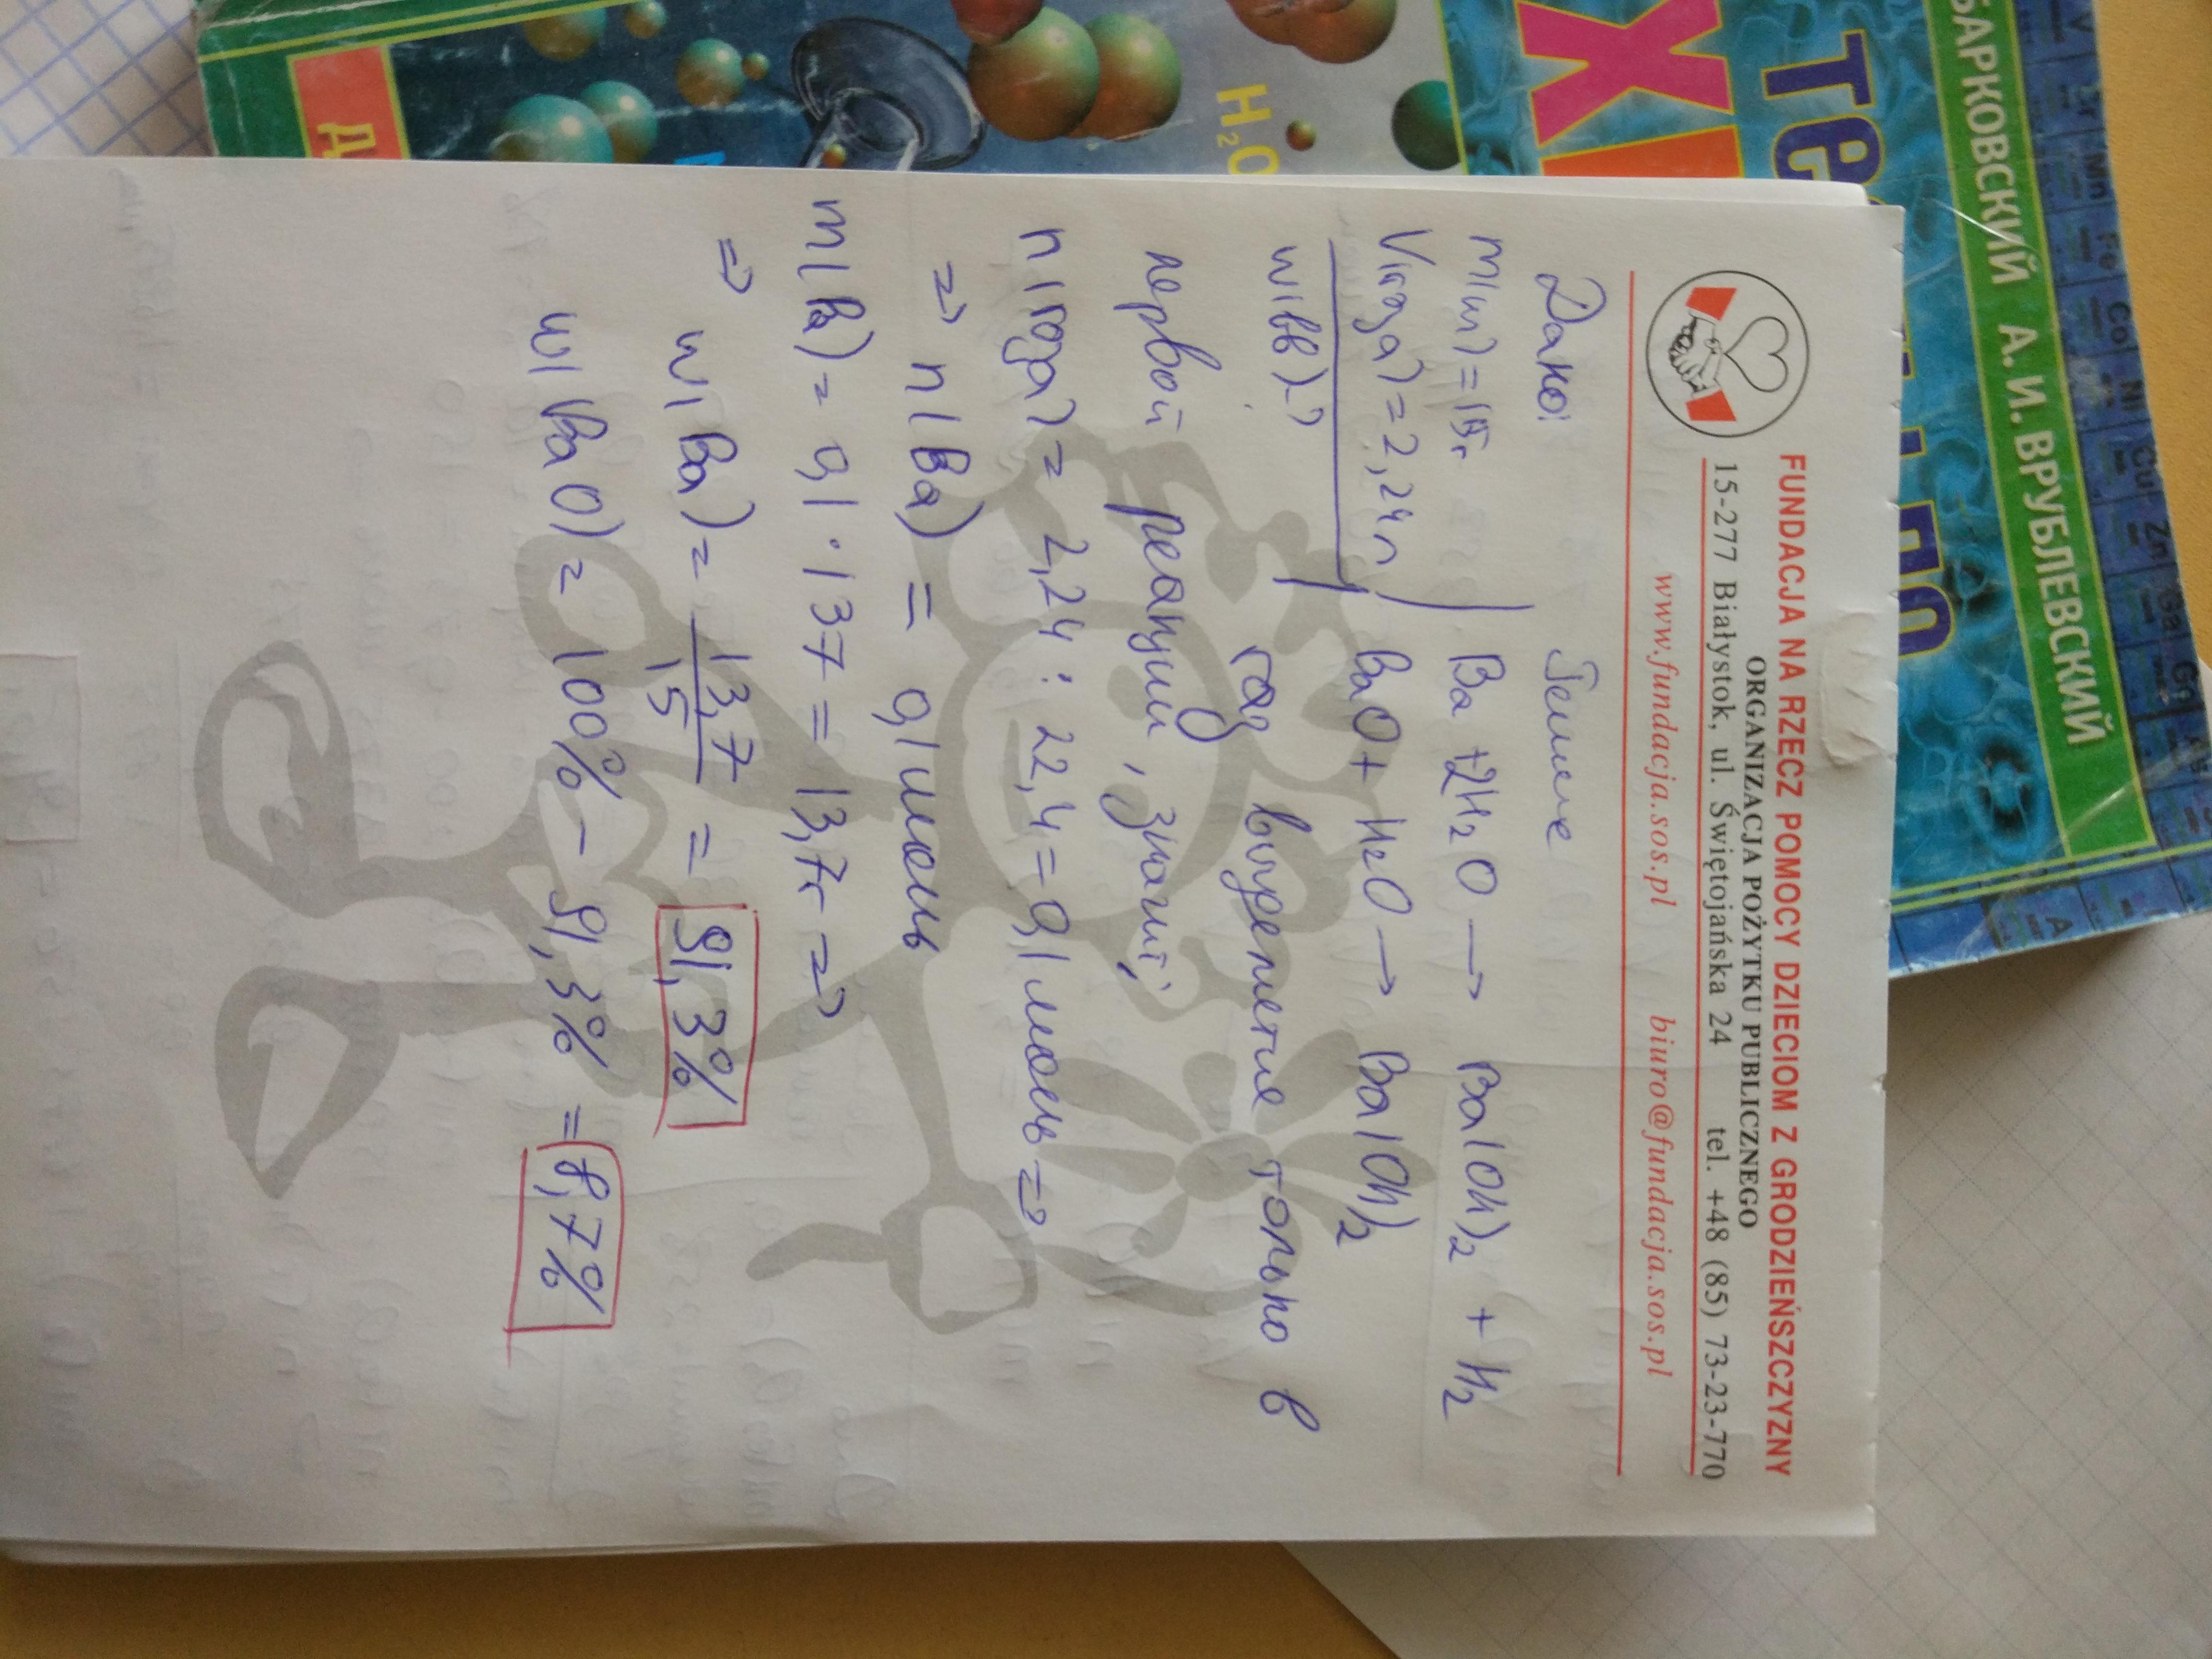 БАРКОВСКИЙ А. И. ВРУБЛЕВСКИЙ
H₂O
FUNDACJA NA RZECZ POMOCY DZIECIOM Z GRODZIEŃSZCZYZNY
ORGANIZACJA POŻYTKU PUBLICZNEGO
15-277 Białystok, ul. Świętojańska 24 tel. +48 (85) 73-23-770
www.fundacja.sos.pl biuro@fundacja.sos.pl
Дано: Решение
m(см) = 15г Ba + 2H₂O → Ba(OH)₂ + H₂
V(газа) = 2,24л BaO + H₂O → Ba(OH)₂
w(вв)-? газ выделяется только в
первой реакции, значит,
n(газа) = 2,24 : 22,4 = 0,1 моль ⇒
⇒ n(Ba) = 0,1 моль
m(Ba) = 0,1 · 137 = 13,7г ⇒
⇒ w(Ba) = 13,7/15 = 91,3%
w(BaO) = 100% - 91,3% = 8,7%